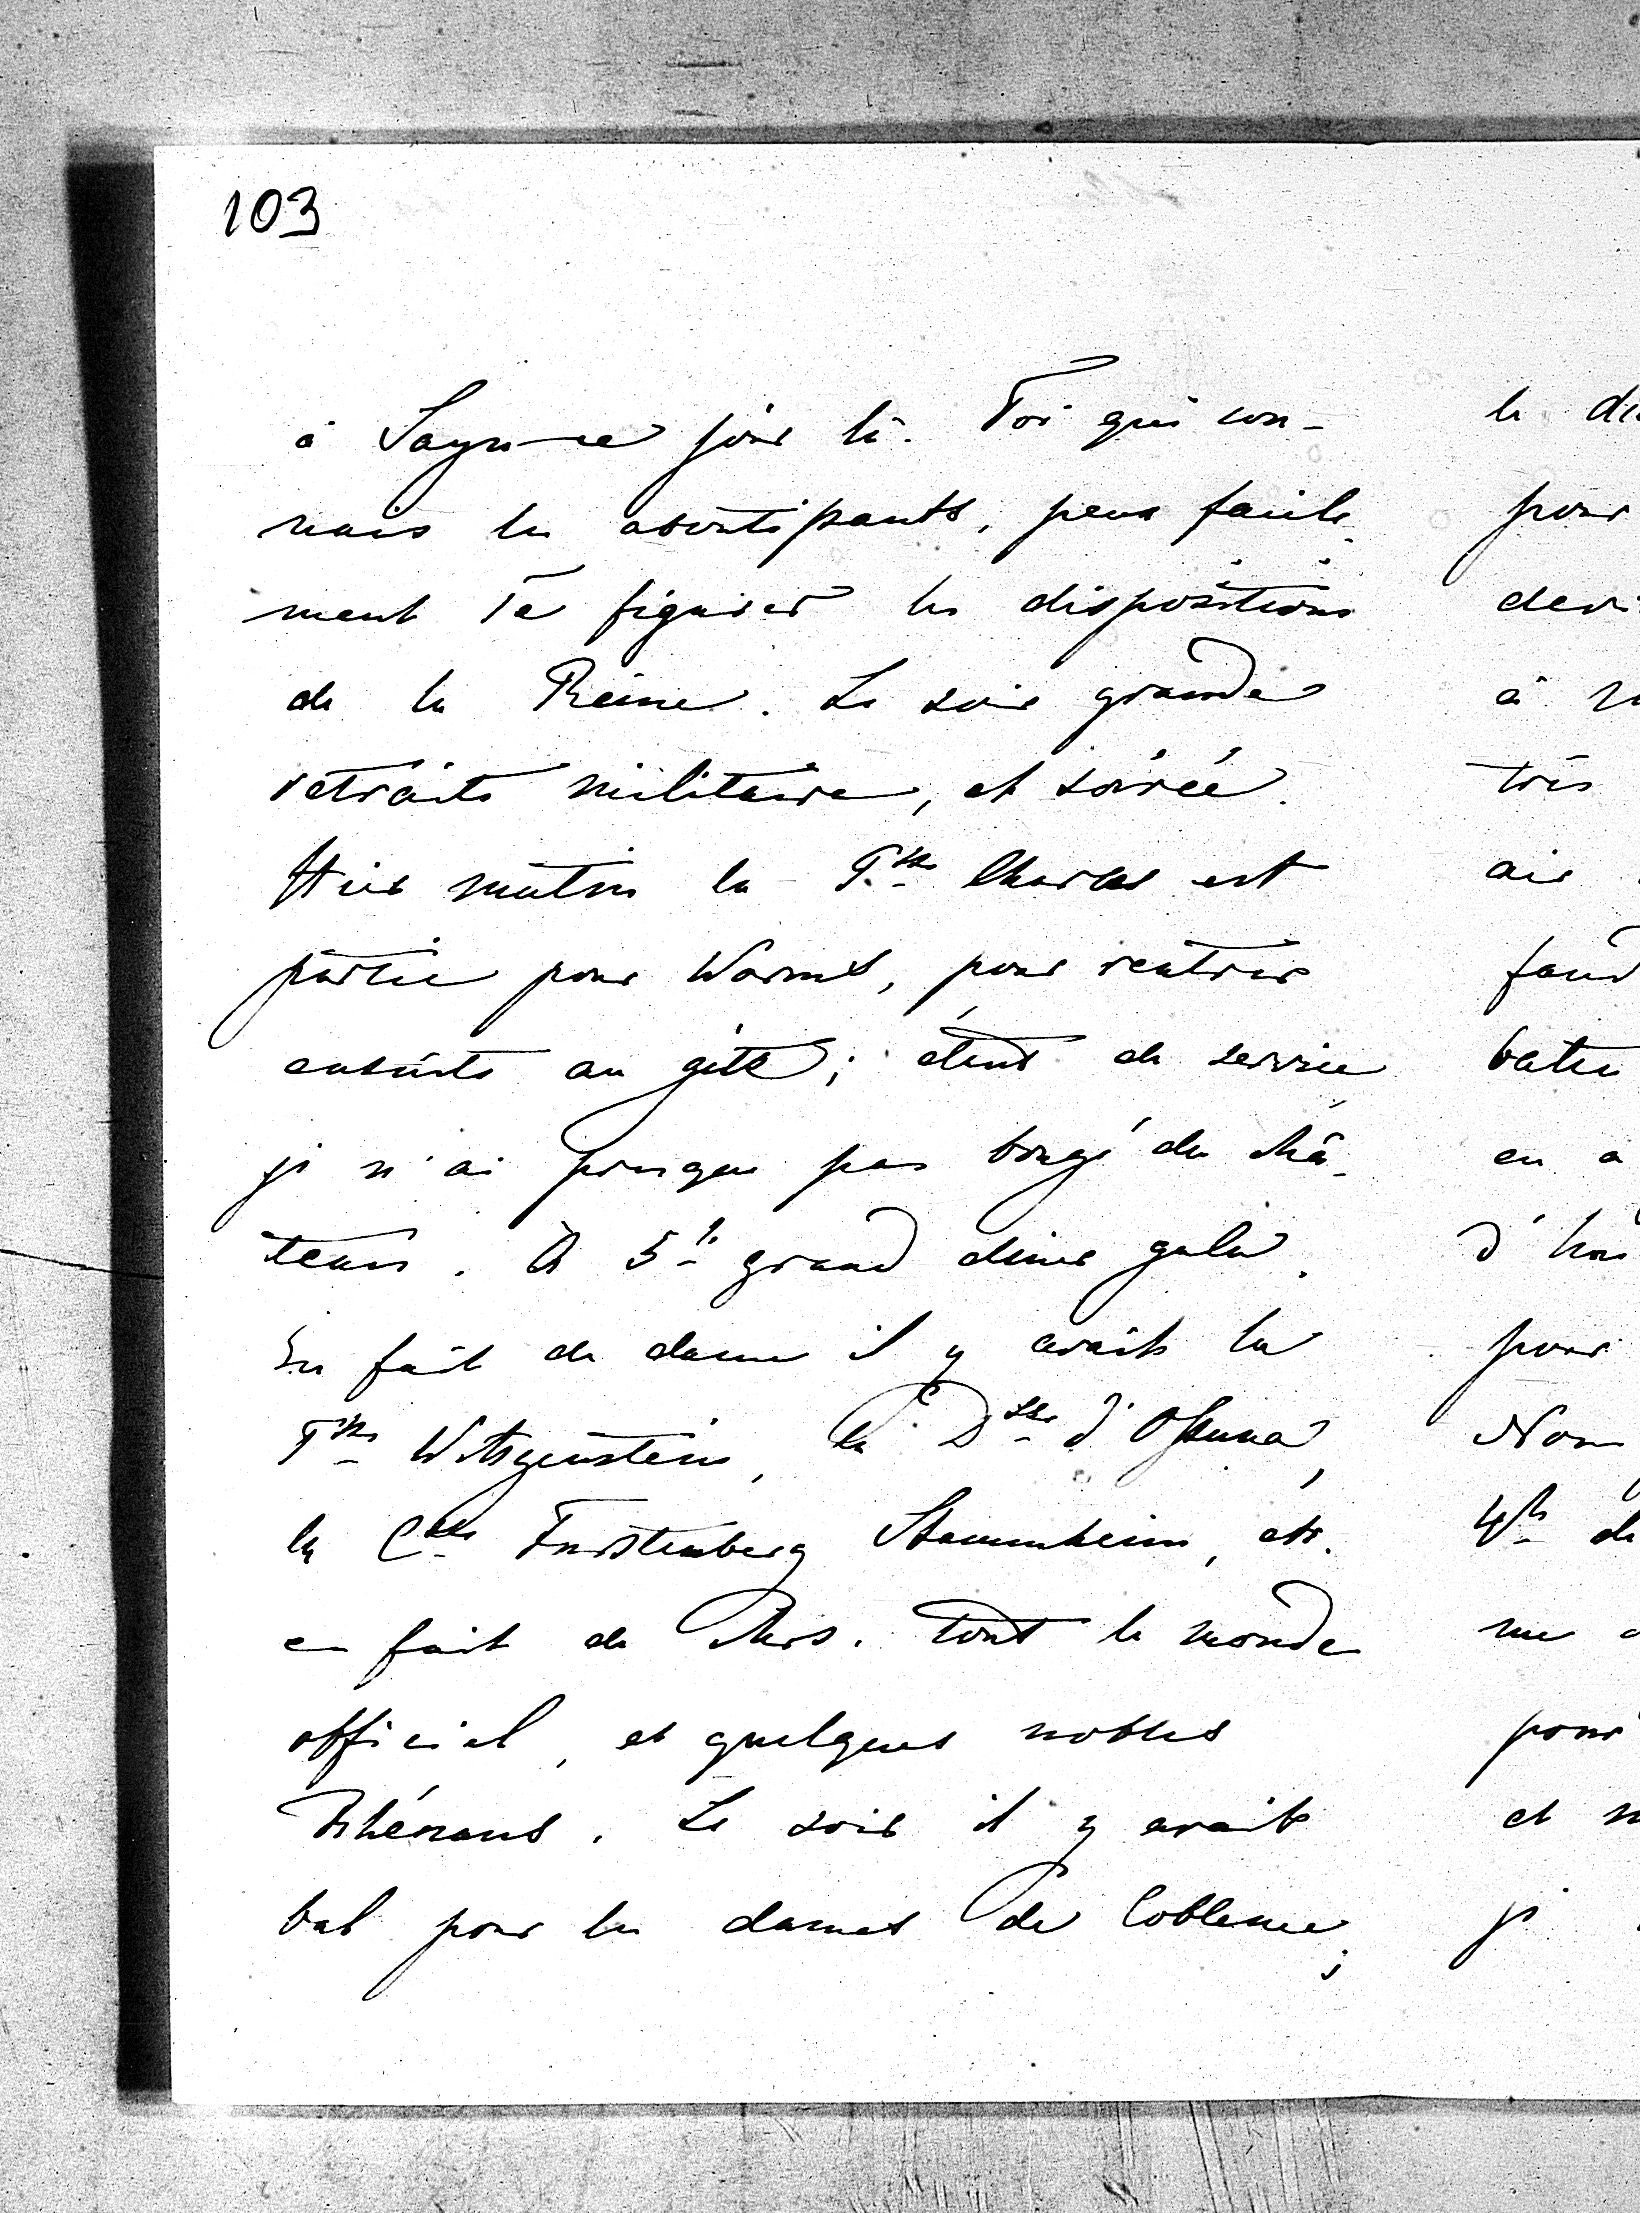 103
à Sayn ce jour là. Toi qui con-
nais les aboutissants, peux facile-
ment Te figurer les dispositions
de la Reine. Le soir grande
retraite militaire, et soirée.
Hier matin la Psse Charles est
partie pour Worms, pour rentrer
ensuite au gîte; étant de service
je n'ai presque pas bougé du châ-
teau. À 5h grand diner gala.
En fait de dames il y avait la
Psse Wittgenstein, la Dsse d'Ossuna,
la Ctsse Furstenberg Stammheim, etc.
en fait de Mrs. tout le monde
officiel, et quelques nobles
Rhénans. Le soir il y avait
bal pour les dames de Coblence;
le
pour
à
très
air
en a
pour
Nous
4h de
me
pour
et
je